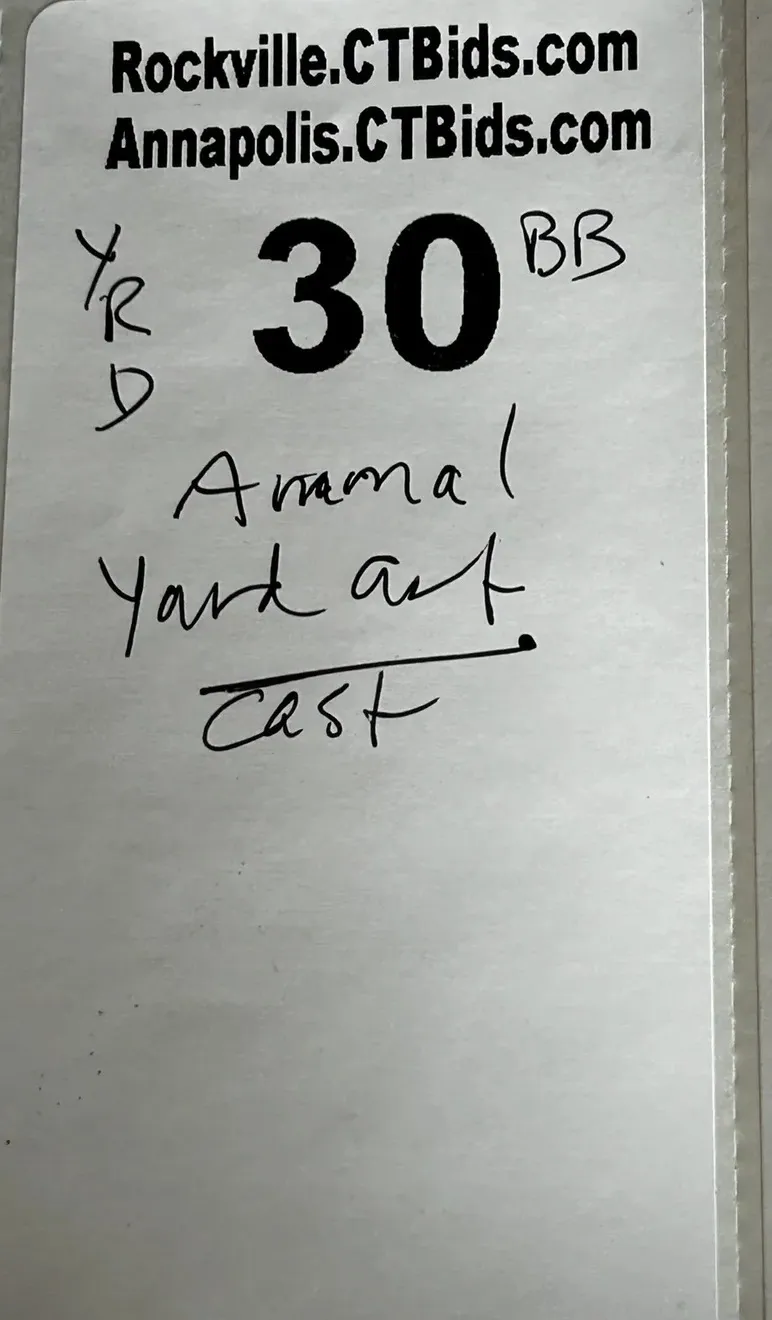 Rockville.CTBids.com
Annapolis.CTBids.com
YRD 30 BB
Animal
Yard art
cast